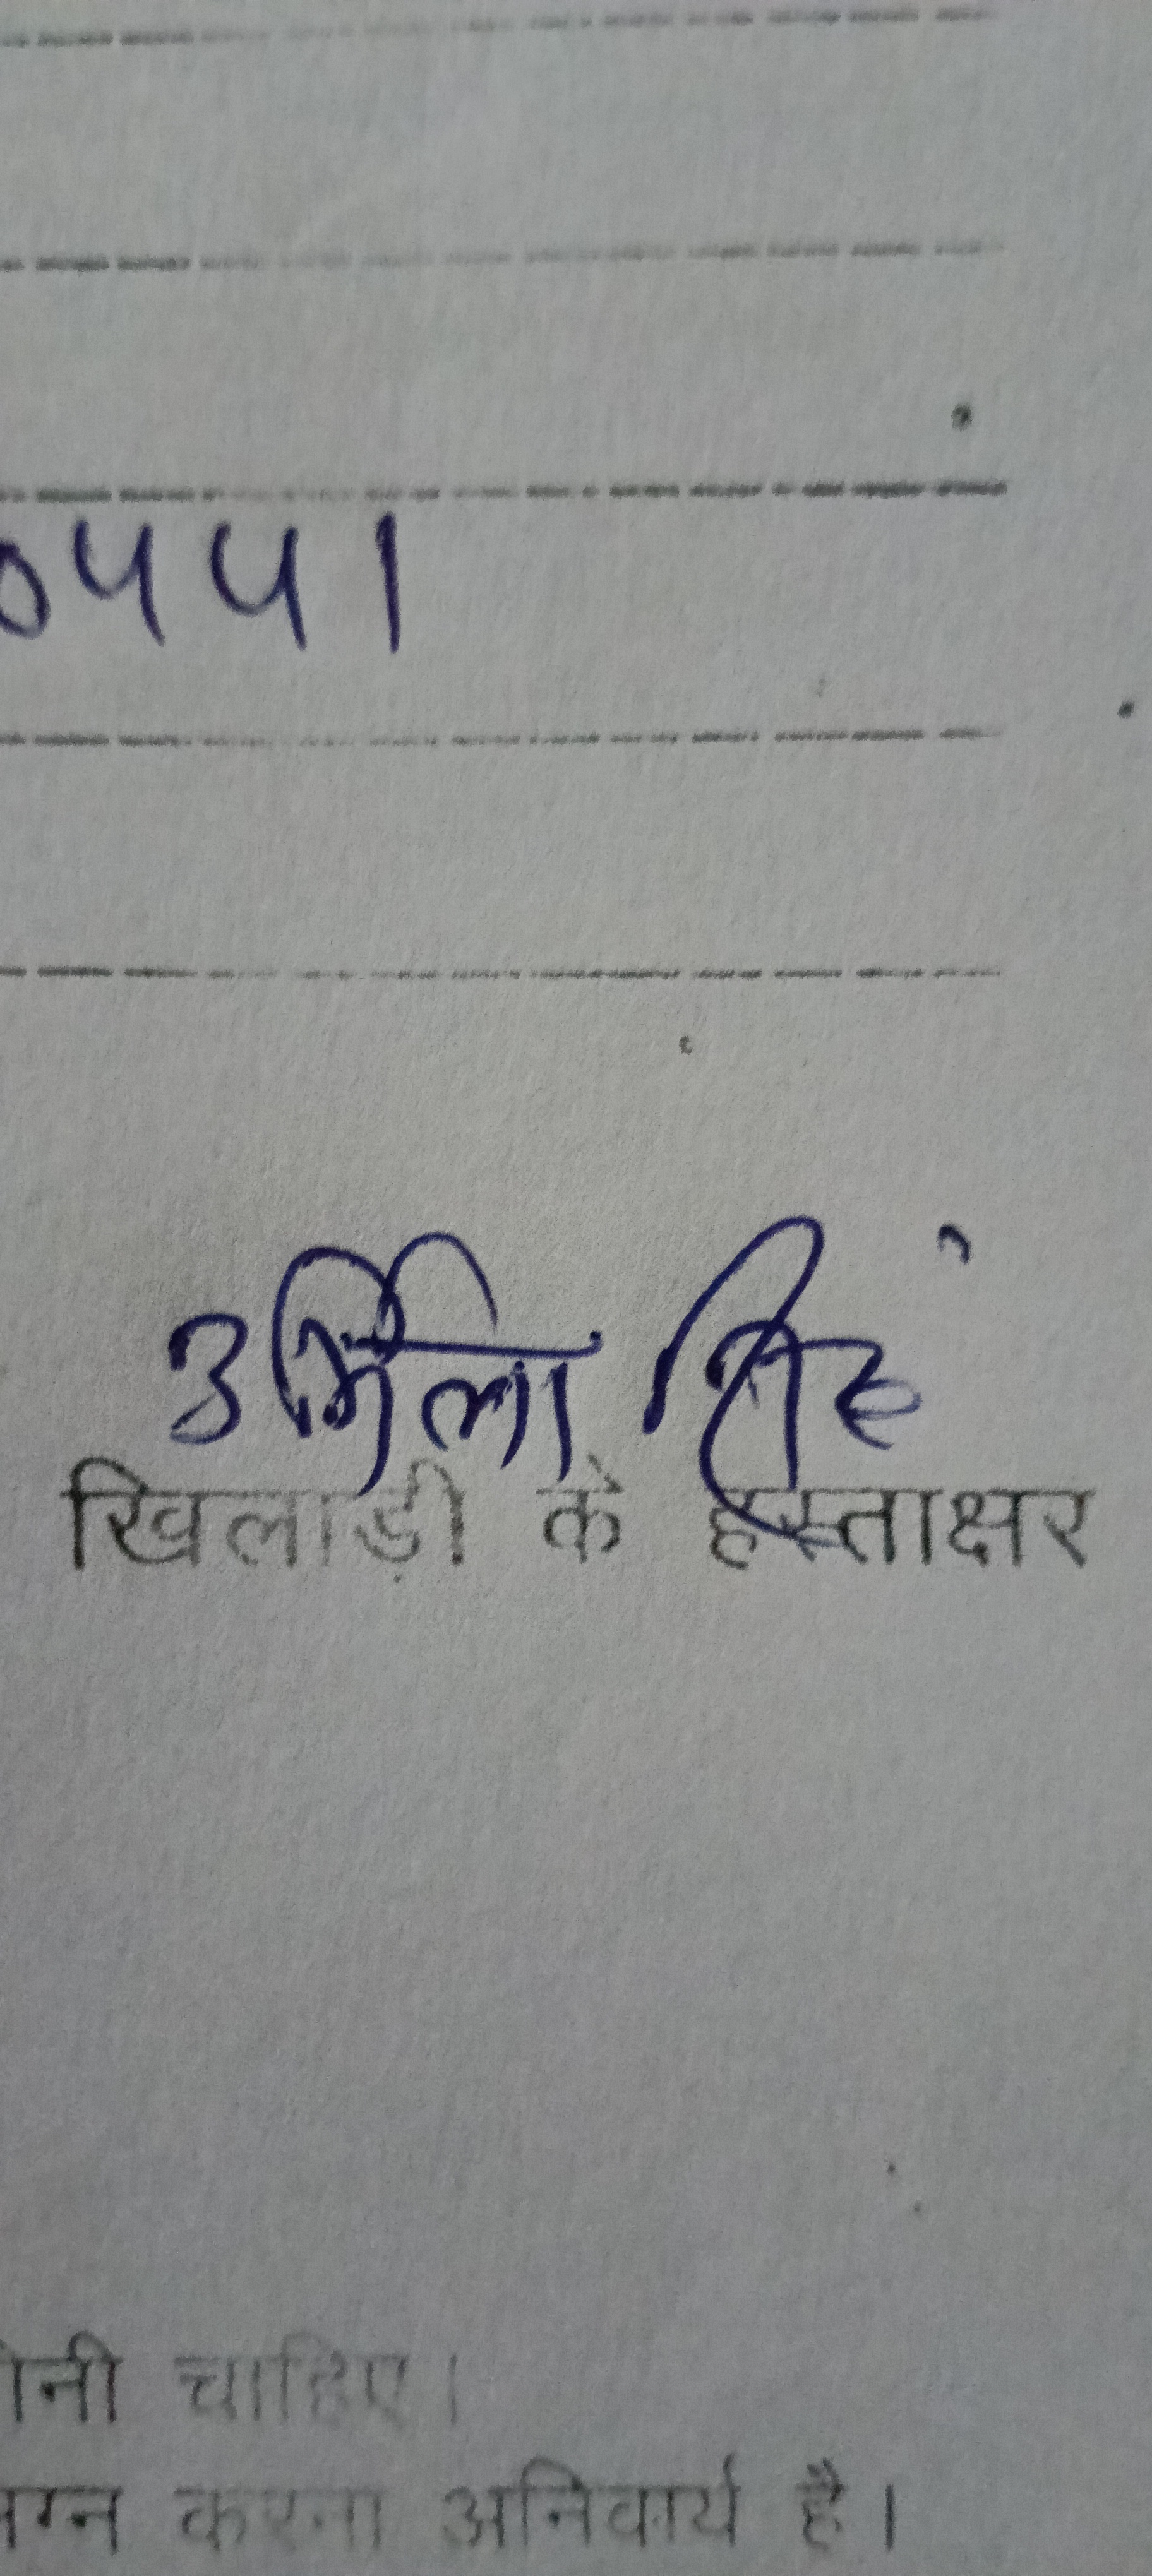 0441
उर्मिला सिंह
खिलाड़ी के हस्ताक्षर
ोनी चाहिए।
ग्न करना अनिवार्य है।